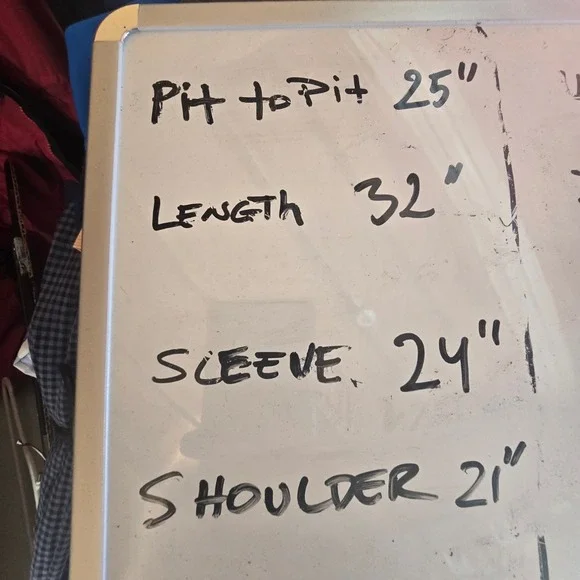 Pit to Pit 25"
LENGTH 32"
SLEEVE. 24"
SHOULDER 21"